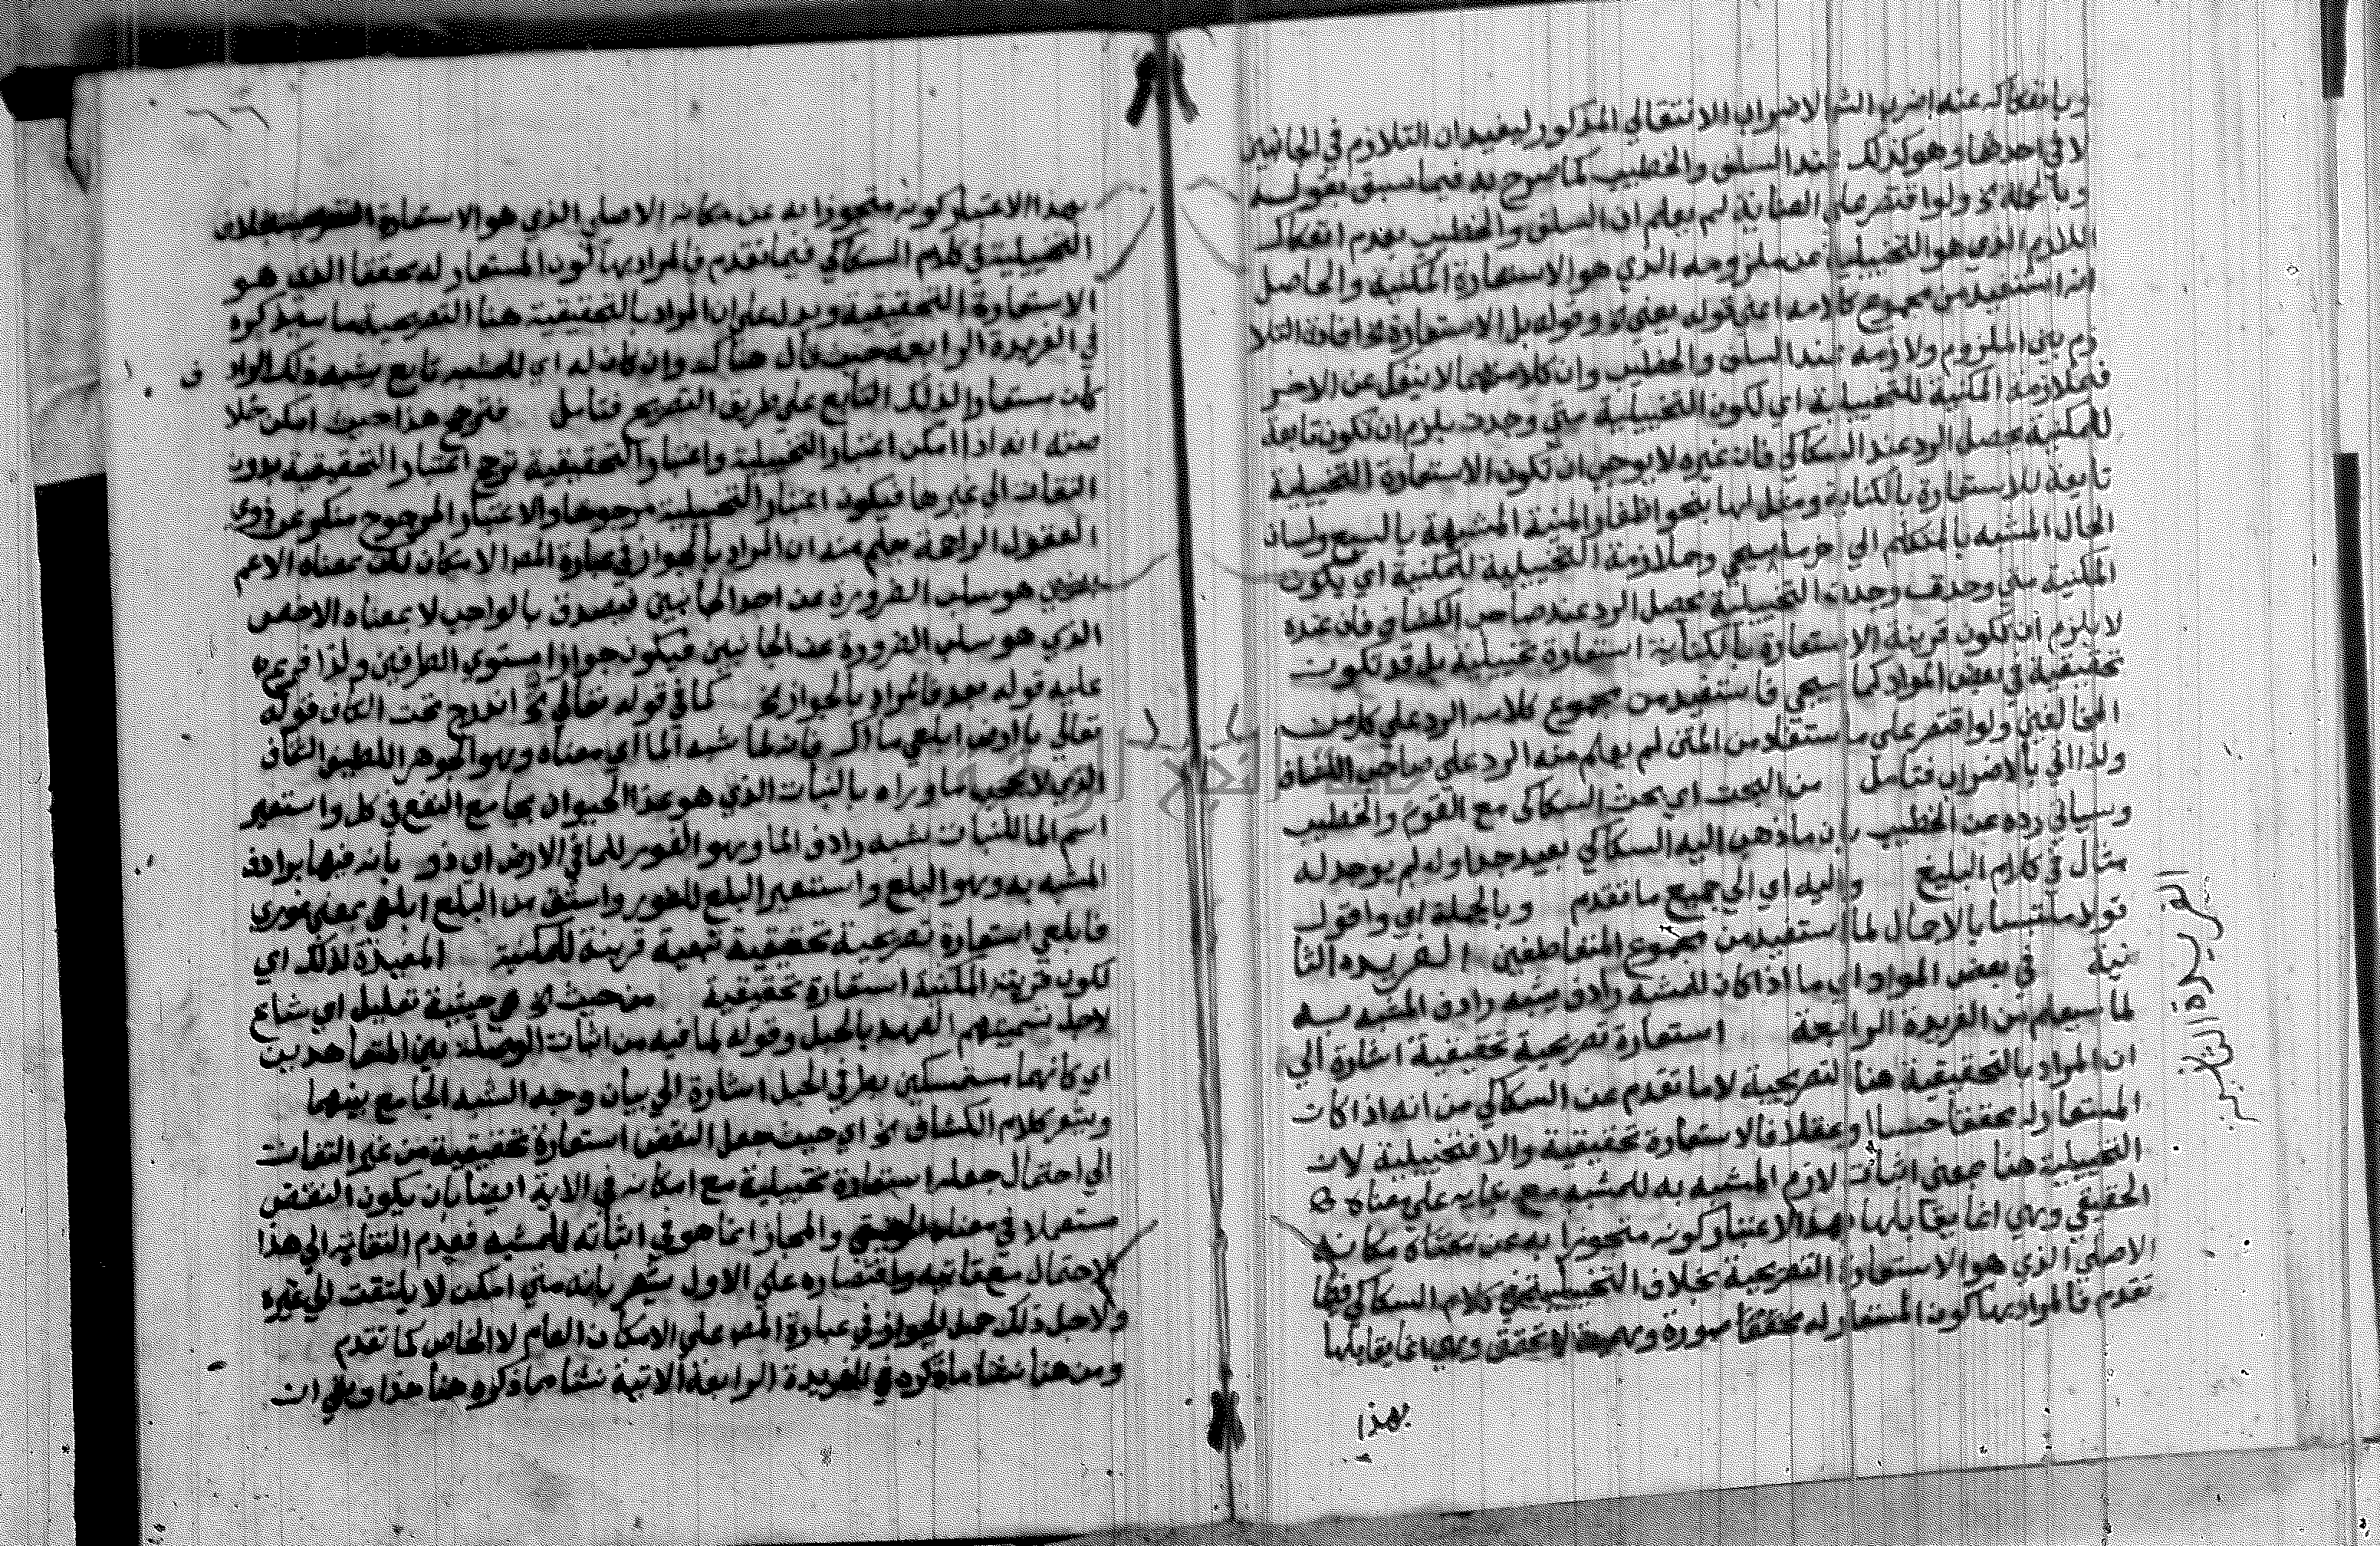 وبانفكاكه عنه اضرب الشا الاضراب الانتقالي المذكور ليفيد ان التلازم في الجانبين
لا في احدهما وهو كذلك عند السلف والخطيب كما صرح به فيما سبق بقوله
وبالجملة الخ ولو اقتصر على العناية لم يعلم ان السلف والخطيب بعدم انفكاك
اللازم الذي هو التخييلية عن ملزومه الذي هو الاستعارة المكنية والحاصل
انه استفيد من مجموع كلامه اعني قوله يعني الخ وقوله بل الاستعارة الخ افادة التلا
زم بين الملزوم ولازمه عند السلف والخطيب وان كلا منهما لا ينفك عن الاخر
فبملازمة المكنية للتخييلية اي لكون التخييلية متى وجدت يلزم ان تكون تابعة
للمكنية يحصل الرد عند السكاكي فان غيره لا يوجب ان تكون الاستعارة التخييلية
تابعة للاستعارة بالكناية ومثل لها بنحو اظفار المنية المشبهة بالسبع ولسان
الحال المشبه بالمتكلم الي غير ما سيجي وبملازمة التخييلية للمكنية اي يكون
المكنية متى وجدت وجدت التخييلية يحصل الرد عند صاحب الكشاف فان عنده
لا يلزم ان تكون قرينة الاستعارة بالكناية استعارة تخييلية بل قد تكون
تحقيقية في بعض المواد كما سيجي فاستفيد من مجموع كلامه الرد على كل من
المخالفين ولو اقتصر على ما استفاد من المتن لم يعلم منه الرد على صاحب الكشاف
ولذا اتي بالاضراب فتامل من البحث اي بحث السكاكي مع القوم والخطيب
وسياتي رده عن الخطيب بان ما ذهب اليه السكاكي بعيد جدا وله لم يوجد له
مثال في كلام البليغ واليه اي الي جميع ما تقدم وبالجملة اي واقول
قولا ملتبسا بالاجمال لما استفيد من مجموع المتقاطفين الفريدة الثا
نية في بعض المواد اي ما اذا كان للمشبه رادف يشبه رادف المشبه به
لما سيعلم من الفريدة الرابعة استعارة تصريحية تحقيقية اشارة الي
ان المراد بالتحقيقية هنا التصريحية لا ما تقدم عن السكاكي من انه اذا كان
المستعار له محققا حسا او عقلا فالاستعارة تحقيقية والا فتخييلية لان
التخييلية هنا بمعنى اثبات لازم المشبه به للمشبه مع بقايه على معناه
الحقيقي وهي انما يقابلها بهذا الاعتبار كونه متجوزا به عن معناه مكانه
الاصلي الذي هو الاستعارة التصريحية بخلاف التخييلية في كلام السكاكي فيما
تقدم فالمراد بها كون المستعار له محققا صورة وهمية لا تحقق وهي انما يقابلها
بهذا
الفريدة الثانية
٦٦
بهذا الاعتبار كونه متجوزا به عن مكانه الاصلي الذي هو الاستعارة التصريحية بخلاف
التخييلية في كلام السكاكي فيما تقدم فالمراد بها كون المستعار له محققا الذي هو
الاستعارة التحقيقية ويدل على ان المراد بالتحقيقية هنا التصريحية ما سيذكره
في الفريدة الرابعة حيث قال هناك وان كان له اي للمشبه تابع يشبه ذلك الراد ف
كان مستعارا لذلك التابع على طريق التصريح فتامل فترجح هذا حيث امكن علا
منه انه اذا امكن اعتبار التخييلية واعتبار التحقيقية ترجح اعتبار التحقيقية بدون
التفات الي غيرها فيكون اعتبار التخييلية مرجوحا والاعتبار المرجوح منكر عن ذوي
العقول الراجحة يعلم منه ان المراد بالجواز في عبارة المص الامكان لكن بمعناه الاعم
الذي هو سلب الضرورة عن احد الجانبين فيصدق بالواجب لا بمعناه الاخص
الذي هو سلب الضرورة عند الجانبين فيكون جوازا مستوي الطرفين ولذا قرينه
عليه قوله بعد فالمراد بالجواز الخ كما في قوله تعالي الخ اندرج تحت الكاف قوله
تعالي يا ارض ابلعي ماك فانه لما شبه الما اي معناه وهو الجوهر اللطيف الشفاف
الذي لا يحجب ما وراه بالنبات الذي هو غذا الحيوان بجامع النفع في كل واستعير
اسم الما للنبات شبه رادف الما وهو الغور للما في الارض اي ذو بانه فيها برادف
المشبه به وهو البلع واستعير البلع للغور واشتق من البلع ابلعي بمعنى غوري
فابلعي استعارة تصريحية تحقيقية تبعية قرينة للمكنية المفيدة لذلك اي
لكون قرينة المكنية استعارة تحقيقية من حيث الخ هي حيثية تعليل اي شاع
لاجل تسميتهم العهد بالحبل وقوله لما فيه من اثبات الوصلة بين المتعاهدين
اي كانهما مستمسكين بطرفي الحبل اشارة الي بيان وجه الشبه الجامع بينهما
ويشعر كلام الكشاف الخ اي حيث جعل النقض استعارة تحقيقية من غير التفات
الي احتمال جعله استعارة تخييلية مع امكانه في الاية ايضا بان يكون النقض
مستعملا في معناه الحقيقي والمجاز انما هو في اثباته للمشبه فعدم التفاته الي هذا
الاحتمال مع تاتيه واقتصاره على الاول يشعر بانه متى امكن لا يلتفت الي غيره
ولاجل ذلك حمل الجواز في عبارة المص على الامكان العام لا الخاص كما تقدم
ومن هنا نشا ما ذكره في الفريدة الرابعة الاتية نشا مما ذكره هنا هذا وبقي ان